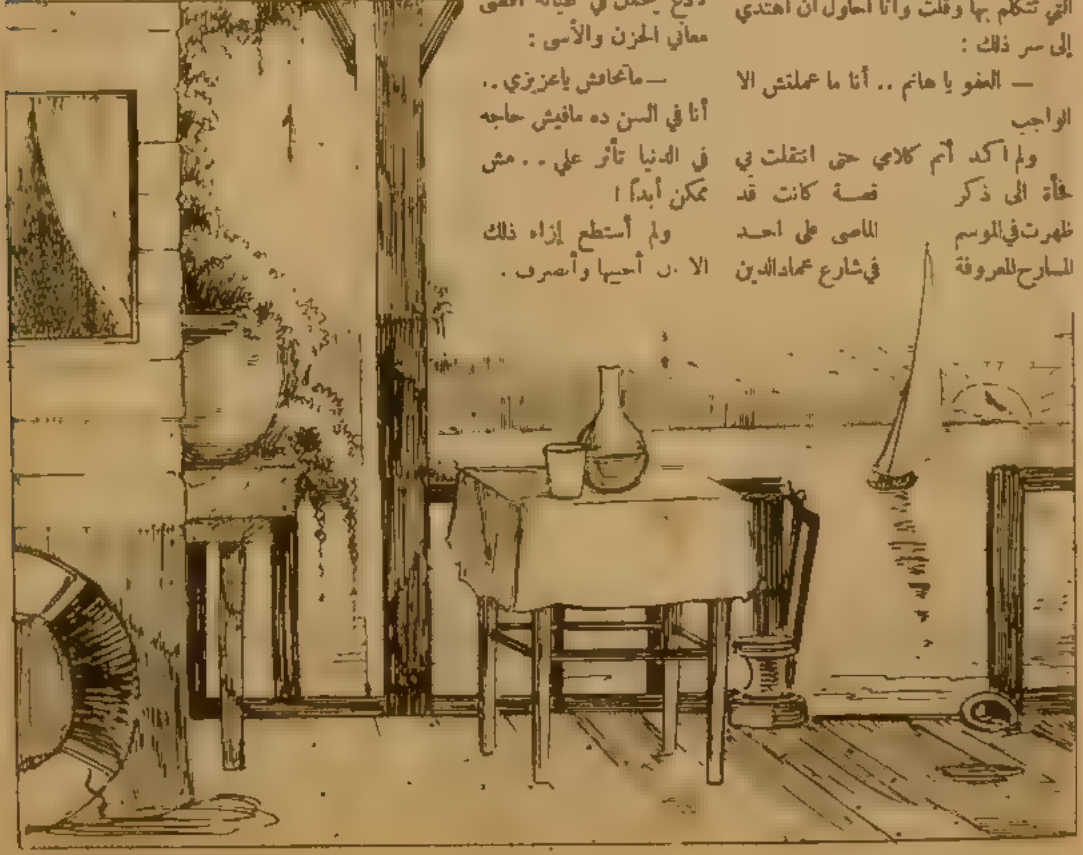 التي تتكلم بها وقلت وأنا احاول ان اهتدي
إلى سر ذلك :
— العفو يا هانم .. أنا ما عملتش الا
الواجب
ولم اكد أتم كلامي حتى انتقلت بي
فجأة الى ذكر قصة كانت قد
ظهرت في الموسم الماضي على احد
المسارح المعروفة في شارع عماد الدين
لاذع يحمل في طياته أقصى
معاني الحزن والأسى :
— ماتخافش ياعزيزي ..
أنا في السن ده مافيش حاجه
في الدنيا تأثر علي .. مش
ممكن أبداً !
ولم أستطع إزاء ذلك
الا ان أحييها وأنصرف .